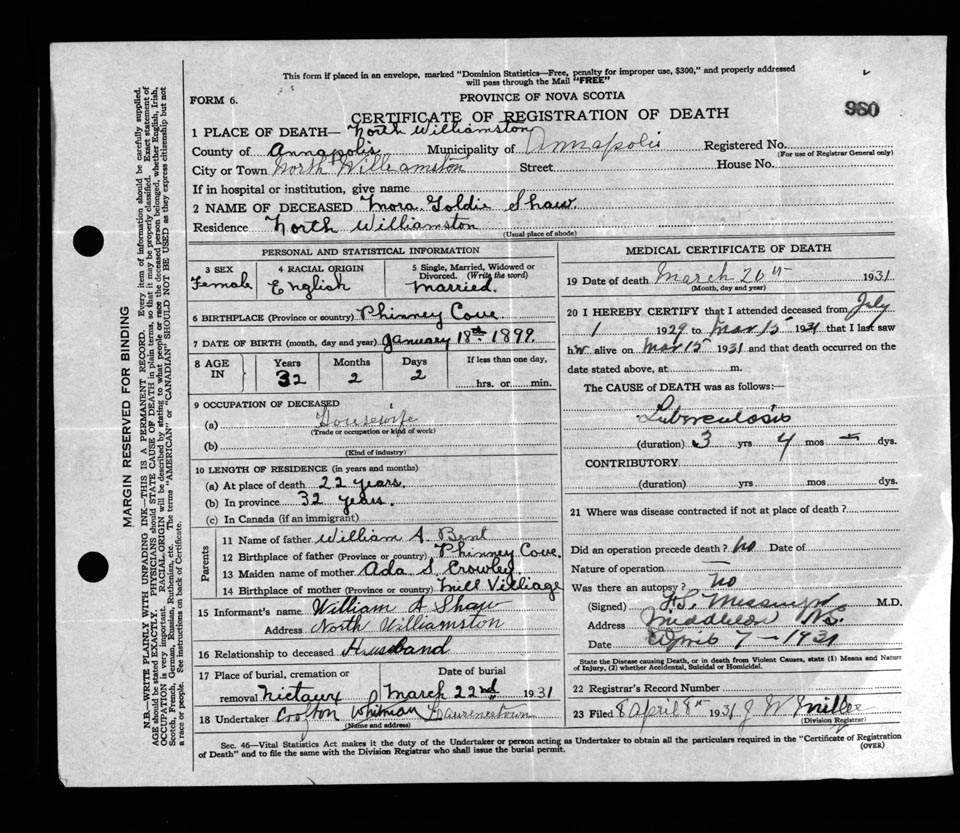 This form if placed in an envelope, marked "Dominion Statistics—Free, penalty for improper use, $300," and properly addressed
will pass through the Mail "FREE"
FORM 6.
PROVINCE OF NOVA SCOTIA
980
CERTIFICATE OF REGISTRATION OF DEATH
1 PLACE OF DEATH— North Williamston
County of Annapolis Municipality of Annapolis Registered No.
(For use of Registrar General only)
City or Town North Williamston Street House No.
If in hospital or institution, give name
2 NAME OF DECEASED Mora Goldie Shaw
Residence North Williamston
(Usual place of abode)
PERSONAL AND STATISTICAL INFORMATION
3 SEX 4 RACIAL ORIGIN 5 Single, Married, Widowed or
Divorced. (Write the word)
Female English Married.
6 BIRTHPLACE (Province or country) Phinney Cove
7 DATE OF BIRTH (month, day and year) January 18th 1899.
8 AGE IN Years Months Days If less than one day,
32 2 2 hrs. or min.
9 OCCUPATION OF DECEASED
(a) Housewife
(Trade or occupation or kind of work)
(b)
(Kind of industry)
10 LENGTH OF RESIDENCE (in years and months)
(a) At place of death 22 years.
(b) In province 32 years.
(c) In Canada (if an immigrant)
Parents
11 Name of father William A. Bent
12 Birthplace of father (Province or country) Phinney Cove.
13 Maiden name of mother Ada S. Crowley
14 Birthplace of mother (Province or country) Mill Villiage
15 Informant's name William A Shaw
Address North Williamston
16 Relationship to deceased Husband
17 Place of burial, cremation or Date of burial
removal Nictaux March 22nd 1931
18 Undertaker Crofton Whitman Laurencetown
(Name and address)
MEDICAL CERTIFICATE OF DEATH
19 Date of death March 20th 1931
(Month, day and year)
20 I HEREBY CERTIFY that I attended deceased from July
1 1929 to Mar 15 1931 that I last saw
her alive on Mar 15 1931 and that death occurred on the
date stated above, at m.
The CAUSE of DEATH was as follows:—
Tuberculosis
(duration) 3 yrs 4 mos — dys.
CONTRIBUTORY
(duration) yrs mos dys.
21 Where was disease contracted if not at place of death?
Did an operation precede death? no Date of
Nature of operation —
Was there an autopsy? no
(Signed) M.D.
Address Middleton N.S.
Date April 7 - 1931
State the Disease causing Death, or in death from Violent Causes, state (1) Means and Nature
of Injury, (2) whether Accidental, Suicidal or Homicidal.
22 Registrar's Record Number
23 Filed 8 April 8th 1931 J W Miller
(Division Registrar)
Sec. 46—Vital Statistics Act makes it the duty of the Undertaker or person acting as Undertaker to obtain all the particulars required in the "Certificate of Registration
of Death" and to file the same with the Division Registrar who shall issue the burial permit.
(OVER)
MARGIN RESERVED FOR BINDING
N.B.—WRITE PLAINLY WITH UNFADING INK—THIS IS A PERMANENT RECORD. Every item of information should be carefully supplied.
AGE should be stated EXACTLY. PHYSICIANS should STATE CAUSE OF DEATH in plain terms, so that it may be properly classified. Exact statement of
OCCUPATION is very important. RACIAL ORIGIN will be described by stating to what people or race the deceased person belonged, whether English, Irish,
Scotch, French, German, Russian, Ruthenian, etc. The terms "AMERICAN" or "CANADIAN" SHOULD NOT BE USED as they express citizenship but not
a race or people. See instructions on back of Certificate.